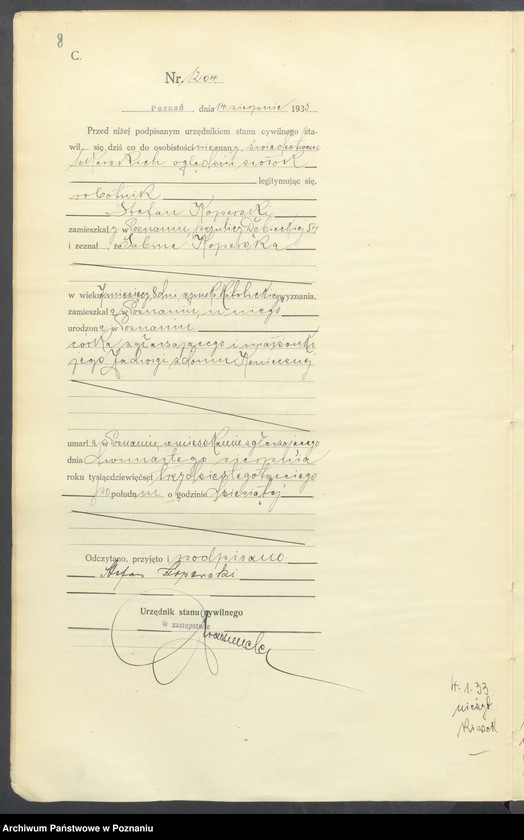 8
C.
Nr. 1204
Poznań, dnia 14 sierpnia 1933.
Przed niżej podpisanym urzędnikiem stanu cywilnego sta-
wił się dziś co do osobistości nieznany,
lekarskich oględzin zwłok
legitymując się,
robotnik
Stefan Koperski
zamieszkały w Poznaniu, przy ulicy Dębieckiej
i zeznał, że Sabina Koperska
w wieku miesięcy 8 dni, rzymsko katolickiego wyznania,
zamieszkała w Poznaniu u niego
urodzona w Poznaniu
córka zgłaszającego i małżonki
jego Jadwigi z domu Koniecznej
umarła w Poznaniu, w mieszkaniu zgłaszającego
dnia dwunastego sierpnia
roku tysiącdziewięćset trzydziestego trzeciego
po południu o godzinie
Odczytano, przyjęto i podpisano
Stefan Koperski
Urzędnik stanu cywilnego
W zastępstwie
4.1.33
Archiwum Państwowe w Poznaniu